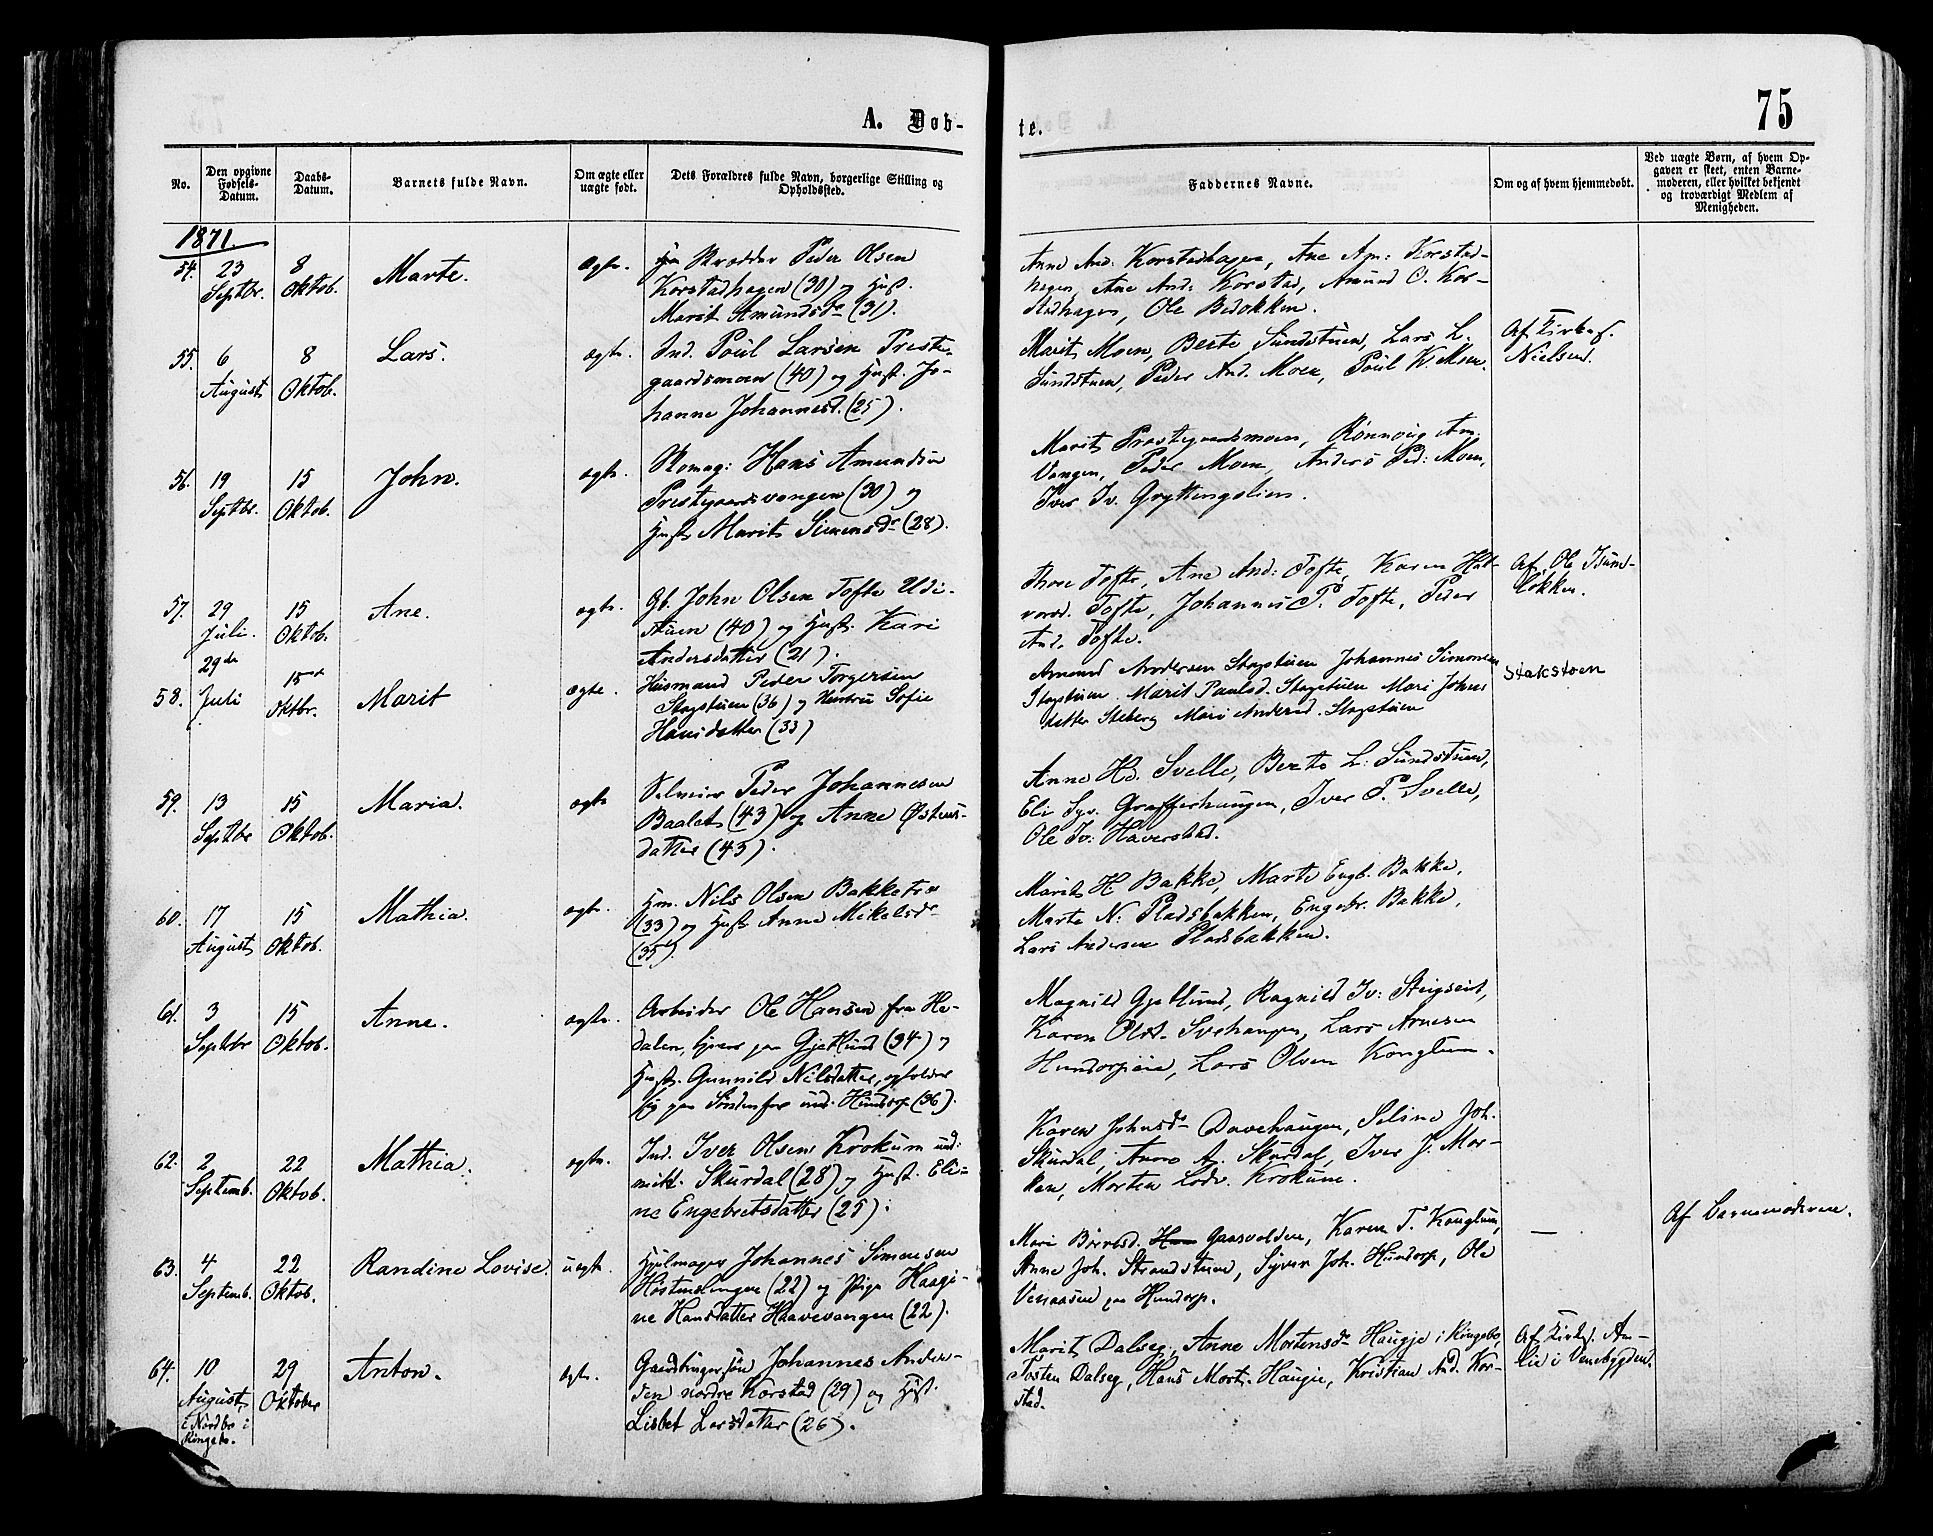 A. Døb-
te.
75
No.
Den opgivne Fødsels-Datum.
Daabs-Datum.
Barnets fulde Navn.
Om ægte eller uægte født.
Dets Forældres fulde Navn, borgerlige Stilling og Opholdssted.
Faddernes Navne.
Om og af hvem hjemmedøbt.
Ved uægte Børn, af hvem Op-
gaven er skeet, enten Barne-
moderen, eller hvilket bekjendt
og troværdigt Medlem af
Menigheden.
1871.
54. 23 Septbr. 8 Oktob. Marte. ægte.
Skrædder Peder Olsen
Korstadhagen (30) og Hust.
Marit Amundsdr (31).
Anne And. Korstadhagen, Ane Am: Korstad-
hagen, Ane And: Korstad, Amund O. Kor-
stadhagen, Ole Bedokken.
55. 6 August 8 Oktob. Lars. ægte.
Ind. Poul Larsen Preste-
gaardsmoen (40) og Hust. Jo-
hanne Johannesd. (25).
Marit Moen, Berte Sundstuen, Lars L.
Sundstuen, Peder And. Moen, Poul K. Moen.
Af Kirkes.
Nielsen.
56. 19 Septbr. 15 Oktob. John. ægte.
Skomag: Hans Amundsen
Prestegaardsvangen (30) og
Hust. Marit Simensdr (28).
Marit Prestegaardsmoen, Rønnoug Am.
Vangen, Peder Moen, Anders Ped: Moen,
Iver Iv. Gryttingslien.
57. 29 Juli. 15 Oktob. Ane. ægte.
Gb. John Olsen Tofte Udi-
stuen (40) og Hust. Kari
Andersdatter (21).
Thore Tofte, Ane And: Tofte, Karen Hal-
vord. Tofte, Johannes P. Tofte, Peder
And. Tofte.
Af Ole Isum-
løkken.
58. 29de Juli 15de Oktbr. Marit ægte.
Huusmand Peder Torgersen
Stagstuen (36) og Hustru Sofie
Hansdatter (33)
Amund Andersen Stagstuen Johannes Simonsen
Stagstuen. Marit Paulsd. Stagstuen Mari Johns
datter Steberg Mari Andersd. Stagstuen
Stakstoen
59. 13 Septbr 15 Oktob. Maria. ægte
Selveier Peder Johannesen
Baalet (43) og Anne Østens-
datter (43).
Anne Hd. Svelle, Berte L: Sundstuen,
Eli Syv. Grafferhaugen, Iver P. Svelle,
Ole Iv: Haverstad.
60. 17 August 15 Oktob. Mathia. ægte.
Hm. Nils Olsen Bakketrø
(33) og Hust. Anne Mikelsdr
(35).
Marit H Bakke, Marte Engb. Bakke,
Marte N: Pladsbakken, Engebr. Bakke,
Lars Andersen Pladsbakken.
61. 3 Septbr 15 Oktob. Anne. ægte.
Arbeider Ole Hansen fra He-
dalen, tjener paa Gjetlund (34) og
Hust. Gunnild Nilsdatter, opholder
sig paa und. Hundorp (36).
Magnild Gjetlund, Ragnild Iv: Steigseit,
Karen Olsd. Svehaugen, Lars Arnesen
Hundorpeie, Lars Olsen Konglum.
62. 2 Septemb. 22 Oktob. Mathia. ægte.
Ind. Iver Olsen Krokum und:
midt. Skurdal (28) og Hust. Eli-
ne Engebretsdatter (25).
Karen Johnsdr Davehaugen, Seline Joh.
Skurdal, Anne A. Skurdal, Iver J. Mor-
ken, Morten Lodv. Krokum.
63. 4 Septemb. 22 Oktob. Randine Lovise. uægte.
Hjulmager Johannes Simensen
(22) og Pige Haagi-
ne Hansdatter Haavevangen (22).
Mari Børresd. Gaasvolden, Karen T. Konglum,
Anne Joh. Strandstuen, Syver Joh. Hundorp, Ole
Venaasen paa Hundorp.
—
Af Barnemoderen.
64. 10 August i Nordbr i Ringeb. 29 Oktober Anton. ægte.
Gaardbrugersøn Johannes Ander-
sen nordre Korstad (29) og Hust.
Lisbet Larsdatter (26).
Marit Dalseg, Anne Mortensdr Haugje i Ringebo,
Tosten Dalseg, Hans Mort. Haugje, Kristian And. Kor-
stad.
Af Kirkes. Am-
lie i Venebygden.